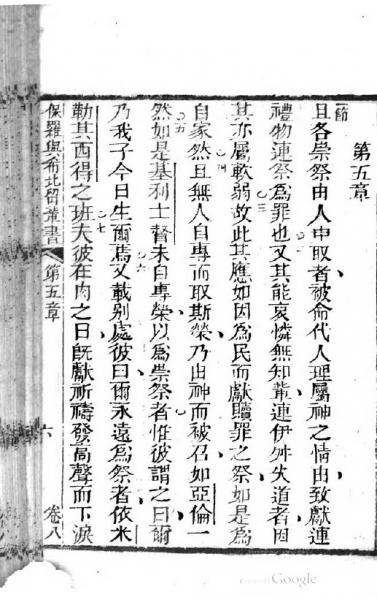 第五章
一節
且各崇祭由人中取者被命代人理屬神之情由致獻連
二
禮物連祭爲罪也又其能哀憐無知輩連伊舛失道者因
三
其亦屬軟弱故此其應如因爲民而獻贖罪之祭如是爲
四
自家然且無人自專而取斯榮乃由神而被召如亞倫一
五
然如是基利士督未自專榮以爲崇祭者惟彼謂之曰爾
六
乃我子今日生爾焉又載別處彼曰爾永遠爲祭者依米
七
勒其西得之班夫彼在肉之日旣獻祈禱發高聲而下淚
保羅與希比留輩書
第五章
六
卷八
Google